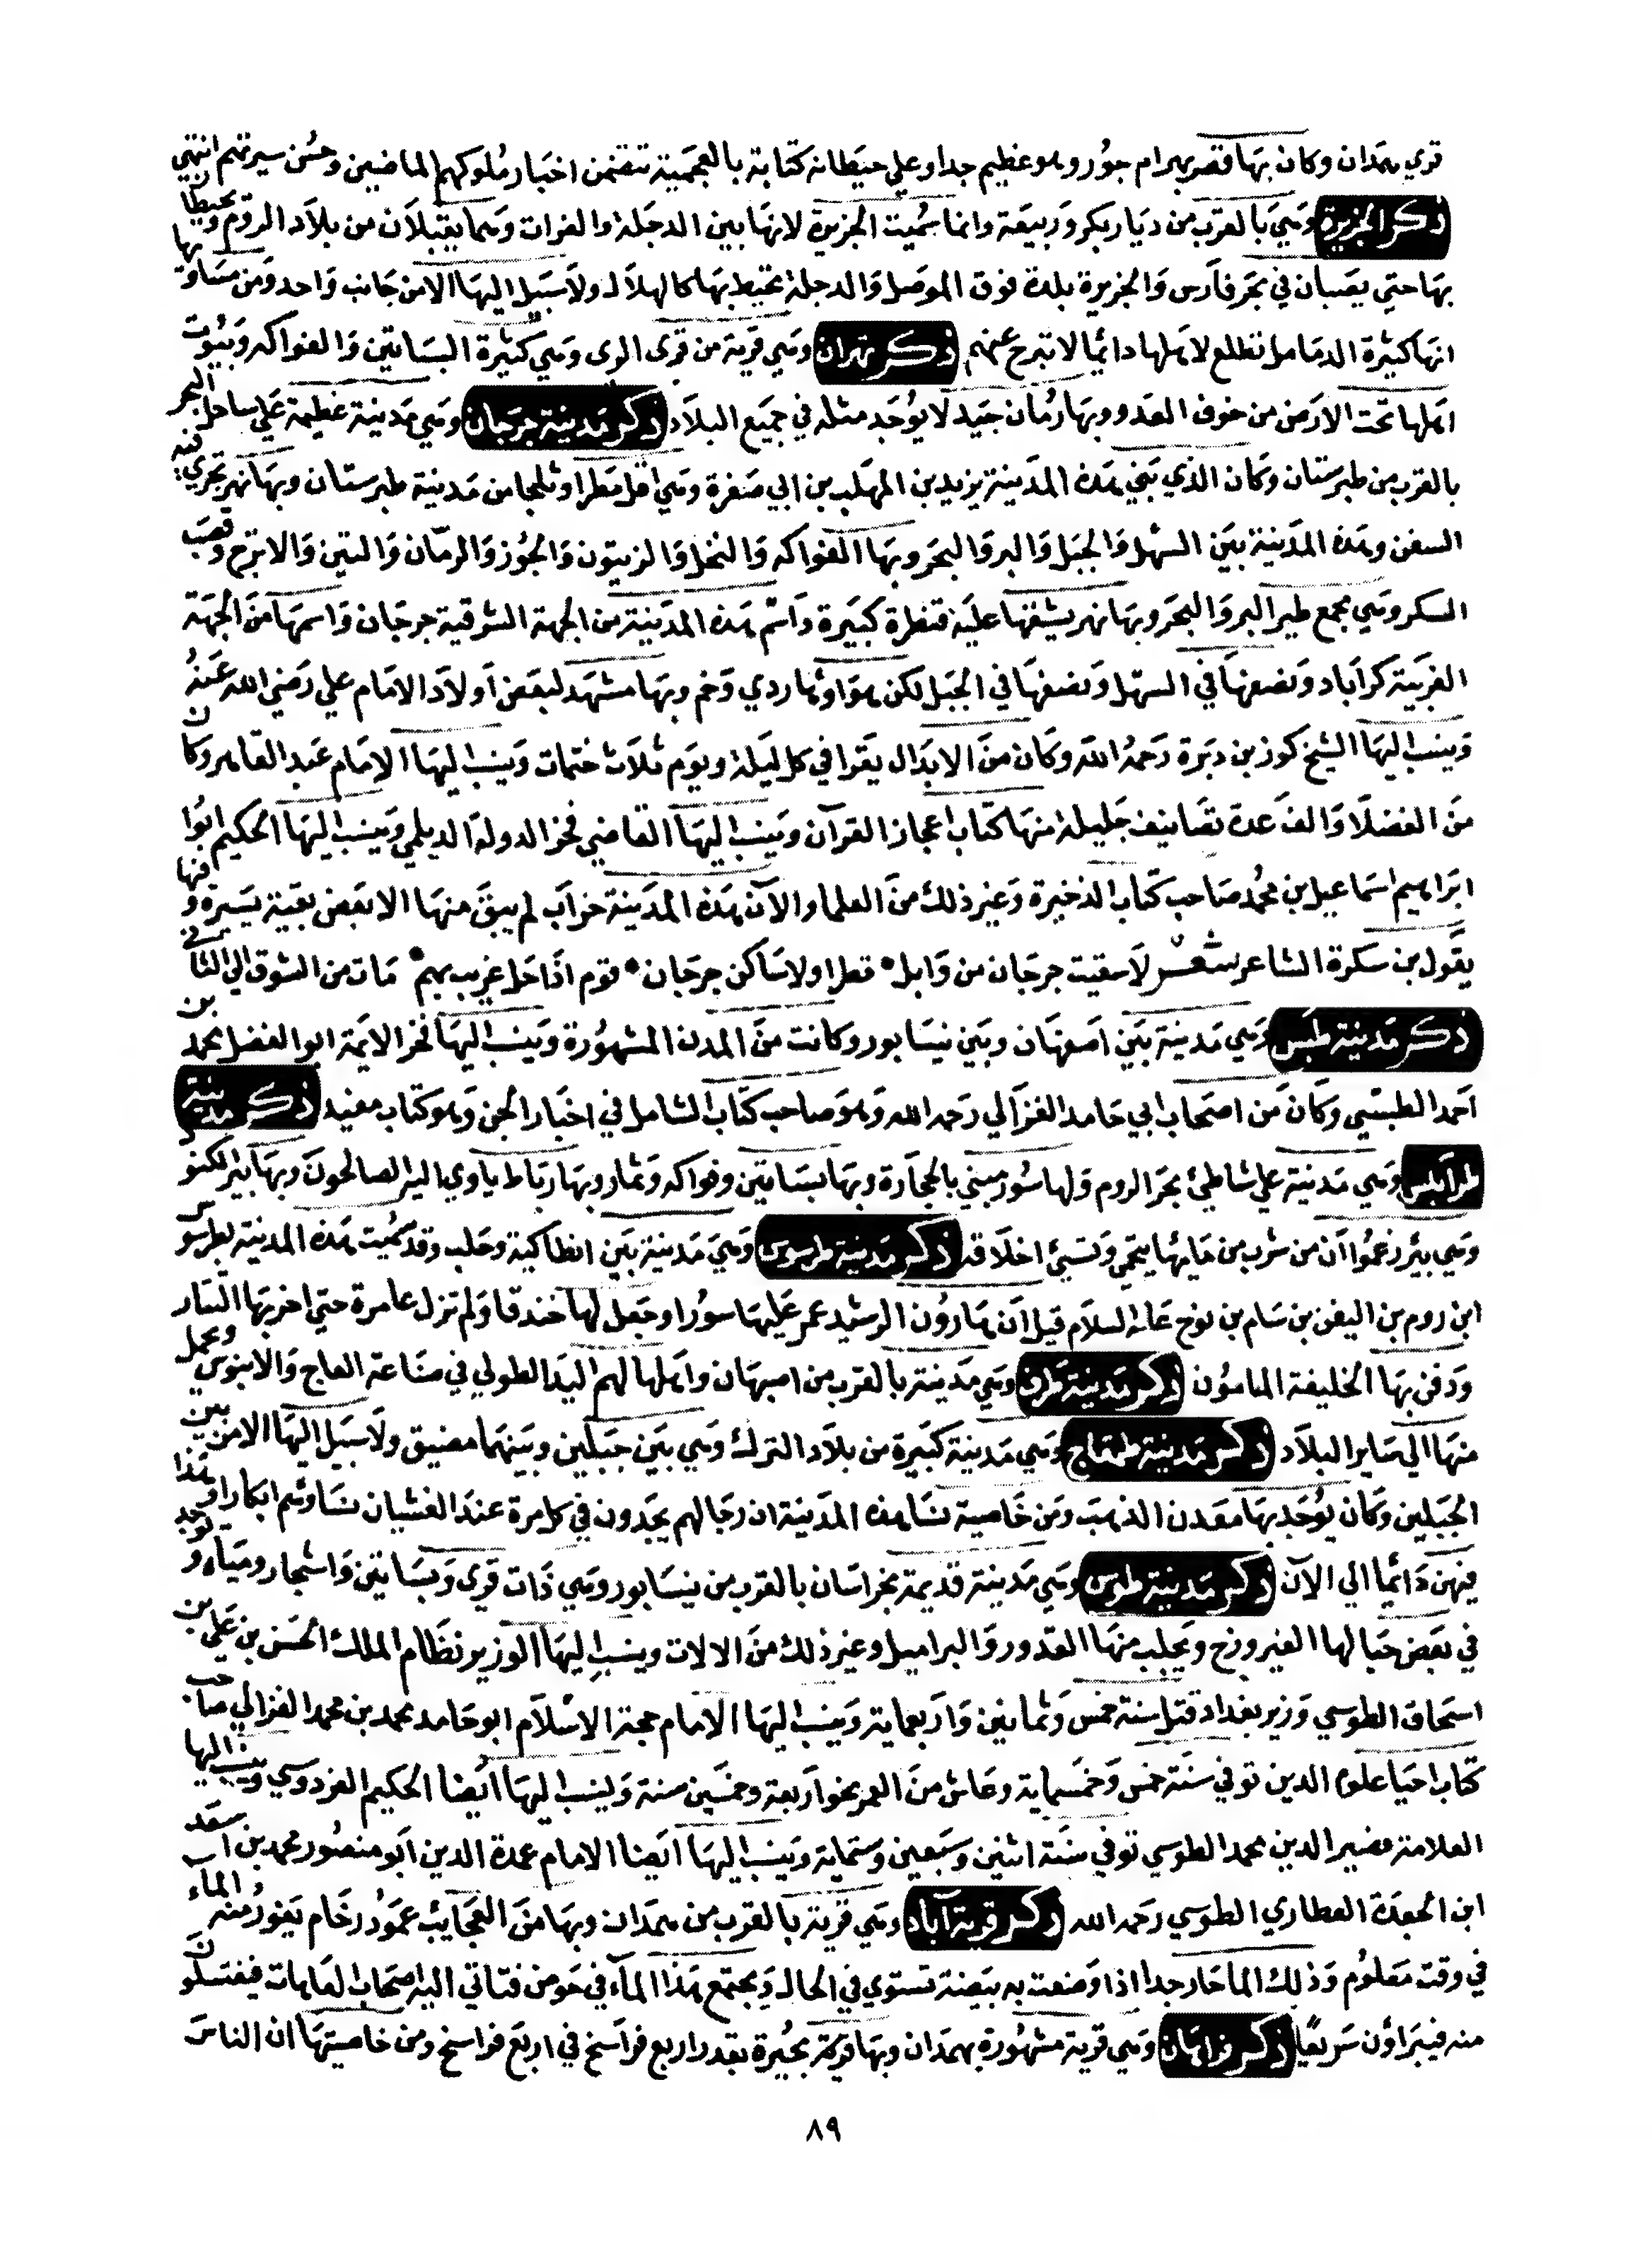 قري همدان وكان بها قصر بهرام جور وهو عظيم جدا وعلي حيطانه كتابة بالعجمية تتضمن اخبار ملوكهم الماضين وحسن سيرتهم انتهي
ذكر الجزيرة وهي بالقرب من ديار بكر وربيعة وانما سميت الجزيرة لانها بين الدجلة والفرات وهما يقبلان من بلاد الروم ويحيطان
بها حتي يصبان في بحر فارس والجزيرة بلدة فوق الموصل والدجلة تحيط بها كالهلال ولا سبيل اليها الا من جانب واحد ومن مساوئها
انها كثيرة الدمامل تطلع لاهلها دائما لا تبرح عنهم ذكر تهران وهي قرية من قرى الرى وهي كثيرة البساتين والفواكه وبيوت
اهلها تحت الارض من خوف العدو وبها رمان جيد لا يوجد مثله في جميع البلاد ذكر مدينة جرجان وهي مدينة عظيمة علي ساحل البحر
بالقرب من طبرستان وكان الذي بني هذه المدينة يزيد بن المهلب بن ابي صفرة وهي اقل مطرا وثلجا من مدينة طبرستان وبها نهر تجري فيه
السفن وهذه المدينة بين السهل والجبل والبر والبحر وبها الفواكه والنخل والزيتون والجوز والرمان والتين والاترج وقصب
السكر وهي مجمع طير البر والبحر وبها نهر يشقها عليه قنطرة كبيرة واسم هذه المدينة من الجهة الشرقية جرجان واسمها من الجهة
الغربية كراباد ونصفها في السهل ونصفها في الجبل لكن هواؤها ردي وخم وبها مشهد لبعض اولاد الامام علي رضي الله عنه
وينسب اليها الشيخ كوز بن دبرة رحمه الله وكان من الابدال يقرا في كل ليلة ويوم ثلاث ختمات وينسب اليها الامام عبد القاهر وكان
من الفضلا والف عدة تصانيف جليلة منها كتاب اعجاز القرآن وينسب اليها القاضي فخر الدولة الديلمي وينسب اليها الحكيم ابوا
ابراهيم اسماعيل بن محمد صاحب كتاب الذخيرة وغير ذلك من العلما والآن هذه المدينة خراب لم يبق منها الا بعض بقية يسيرة وفيها
يقول بن سكرة الشاعر شعر لا سقيت جرجان من وابل • قطرا ولا ساكن جرجان • قوم اذا حل غريب بهم • مات من الشوق الي الثاني
ذكر مدينة طبس وهي مدينة بين اصفهان وبين نيسابور وكانت من المدن المشهورة وينسب اليها فخر الايمة ابو الفضل محمد بن
احمد الطبسي وكان من اصحاب ابي حامد الغزالي رحمه الله وهو صاحب كتاب الشامل في اخبار الجن وهو كتاب مفيد ذكر مدينة
طرابلس وهي مدينة علي شاطئ بحر الروم ولها سور مبني بالحجارة وبها بساتين وفواكه وثمار وبها رباط ياوي اليه الصالحون وبها بئر لكنود
وهي بئر زعموا ان من شرب من مايها يتحمي وتسئ اخلاقه ذكر مدينة طرسوس وهي مدينة بين انطاكية وحلب وقد سميت هذه المدينة بطرسوس
ابن روم بن اليفن بن سام بن نوح عليه السلام قيل ان هارون الرشيد عمر عليها سورا وجعل لها خندقا ولم تزل عامرة حتي اخربها التتار
ودفن بها الخليفة المامون ذكر مدينة طرق وهي مدينة بالقرب من اصبهان واهلها لهم اليد الطولي في صناعة العاج والابنوس ويحمل
منها الي ساير البلاد ذكر مدينة طمغاج وهي مدينة كبيرة من بلاد الترك وهي بين جبلين وبينهما مضيق ولا سبيل اليها الا من بين
الجبلين وكان يوجد بها معدن الذهب ومن خاصية نساء هذه المدينة ان رجالهم يجدون في كل مرة عند الغشيان نساؤهم ابكارا وهذا
فيهن دائما الي الآن ذكر مدينة طوس وهي مدينة قديمة بخراسان بالقرب من نيسابور وهي ذات قرى وبساتين واشجار ومياه وتوجد
في بعض جبالها الفيروزج ويجلب منها القدور والبراميل وغير ذلك من الالات وينسب اليها الوزير نظام الملك الحسن بن علي بن
اسحاق الطوسي وزير بغداد قتل سنة خمس وثمانين واربعماية وينسب اليها الامام حجة الاسلام ابو حامد محمد بن محمد الغزالي صاحب
كتاب احيا علوم الدين توفي سنة خمس وخمسماية وعاش من العمر نحو اربعة وخمسين سنة وينسب اليها ايضا الحكيم الفردوسي وينسب اليها
العلامة نصير الدين محمد الطوسي توفي سنة اثنين وسبعين وستماية وينسب اليها ايضا الامام عمدة الدين ابو منصور محمد بن اسعد
ابن الحفدة العطاري الطوسي رحمه الله ذكر قرية آباد وهي قرية بالقرب من همدان وبها من العجايب عمود رخام يفور منه الماء
في وقت معلوم وذلك الما حار جدا اذا وضعت به بيضة تستوي في الحال ويجتمع هذا المآء في حوض فتاتي اليه اصحاب العاهات فيغتسلون
منه فيبراون سريعا ذكر فراهان وهي قرية مشهورة بهمدان وبها بحيرة بقدر اربع فراسخ في اربع فراسخ ومن خاصيتها ان الناس
٨٩